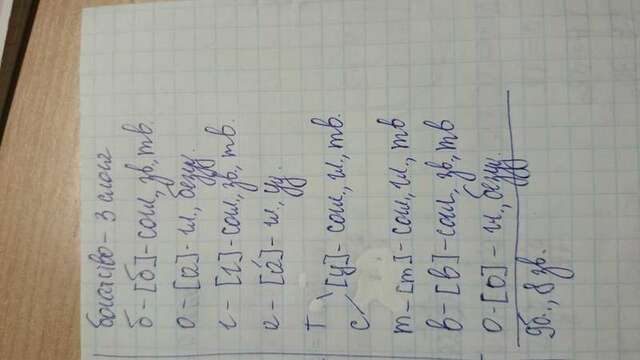 богатство - 3 слога
б - [б] - согл, зв, тв.
о - [а] - гл, безуд.
г - [г] - согл, зв, тв.
а - [á] - гл, уд.
т
с [ц] - согл, гл, тв.
т - [т] - согл, гл, тв
в - [в] - согл, зв, тв
о - [а] - гл, безуд
9б., 8 зв.